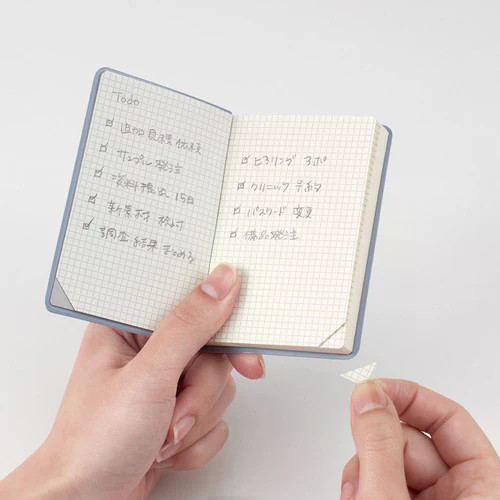 Todo
追加見積依頼
サンプル発注
資料提出 15日
新素材 検討
調査結果まとめる
ヒアリング アポ
クリニック 予約
パスワード 変更
備品発注